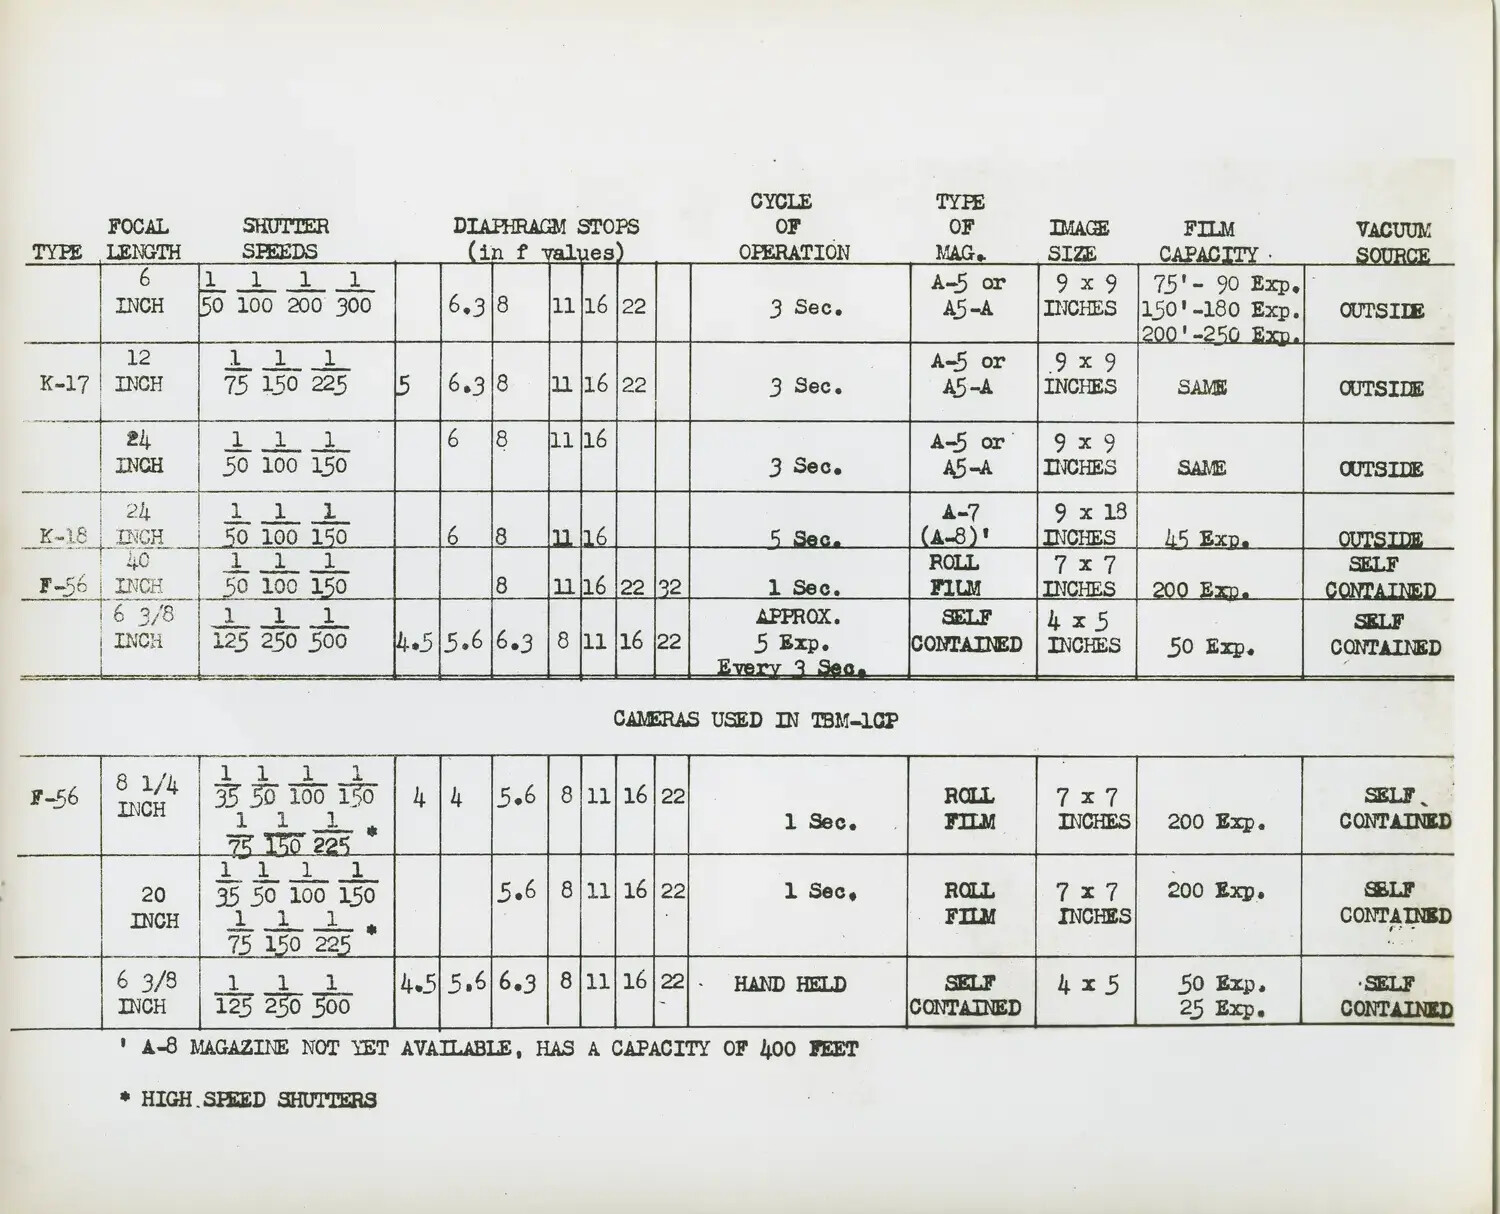 TYPE FOCAL LENGTH SHUTTER SPEEDS DIAPHRAGM STOPS (in f values) CYCLE OF OPERATION TYPE OF MAG. IMAGE SIZE FILM CAPACITY VACUUM SOURCE
6 INCH 1/50 1/100 1/200 1/300 6.3 8 11 16 22 3 Sec. A-5 or A5-A 9 x 9 INCHES 75'- 90 Exp. 150'-180 Exp. 200'-250 Exp. OUTSIDE
K-17 12 INCH 1/75 1/150 1/225 5 6.3 8 11 16 22 3 Sec. A-5 or A5-A 9 x 9 INCHES SAME OUTSIDE
24 INCH 1/50 1/100 1/150 6 8 11 16 3 Sec. A-5 or A5-A 9 x 9 INCHES SAME OUTSIDE
K-18 24 INCH 1/50 1/100 1/150 6 8 11 16 5 Sec. A-7 (A-8)' 9 x 18 INCHES 45 Exp. OUTSIDE
F-56 40 INCH 1/50 1/100 1/150 8 11 16 22 32 1 Sec. ROLL FILM 7 x 7 INCHES 200 Exp. SELF CONTAINED
6 3/8 INCH 1/125 1/250 1/500 4.5 5.6 6.3 8 11 16 22 APPROX. 5 Exp. Every 3 Sec. SELF CONTAINED 4 x 5 INCHES 50 Exp. SELF CONTAINED
CAMERAS USED IN TBM-1CP
F-56 8 1/4 INCH 1/35 1/50 1/100 1/150 1/75 1/150 1/225 * 4 4 5.6 8 11 16 22 1 Sec. ROLL FILM 7 x 7 INCHES 200 Exp. SELF CONTAINED
20 INCH 1/35 1/50 1/100 1/150 1/75 1/150 1/225 * 5.6 8 11 16 22 1 Sec. ROLL FILM 7 x 7 INCHES 200 Exp. SELF CONTAINED
6 3/8 INCH 1/125 1/250 1/500 4.5 5.6 6.3 8 11 16 22 HAND HELD SELF CONTAINED 4 x 5 50 Exp. 25 Exp. SELF CONTAINED
' A-8 MAGAZINE NOT YET AVAILABLE, HAS A CAPACITY OF 400 FEET
* HIGH SPEED SHUTTERS